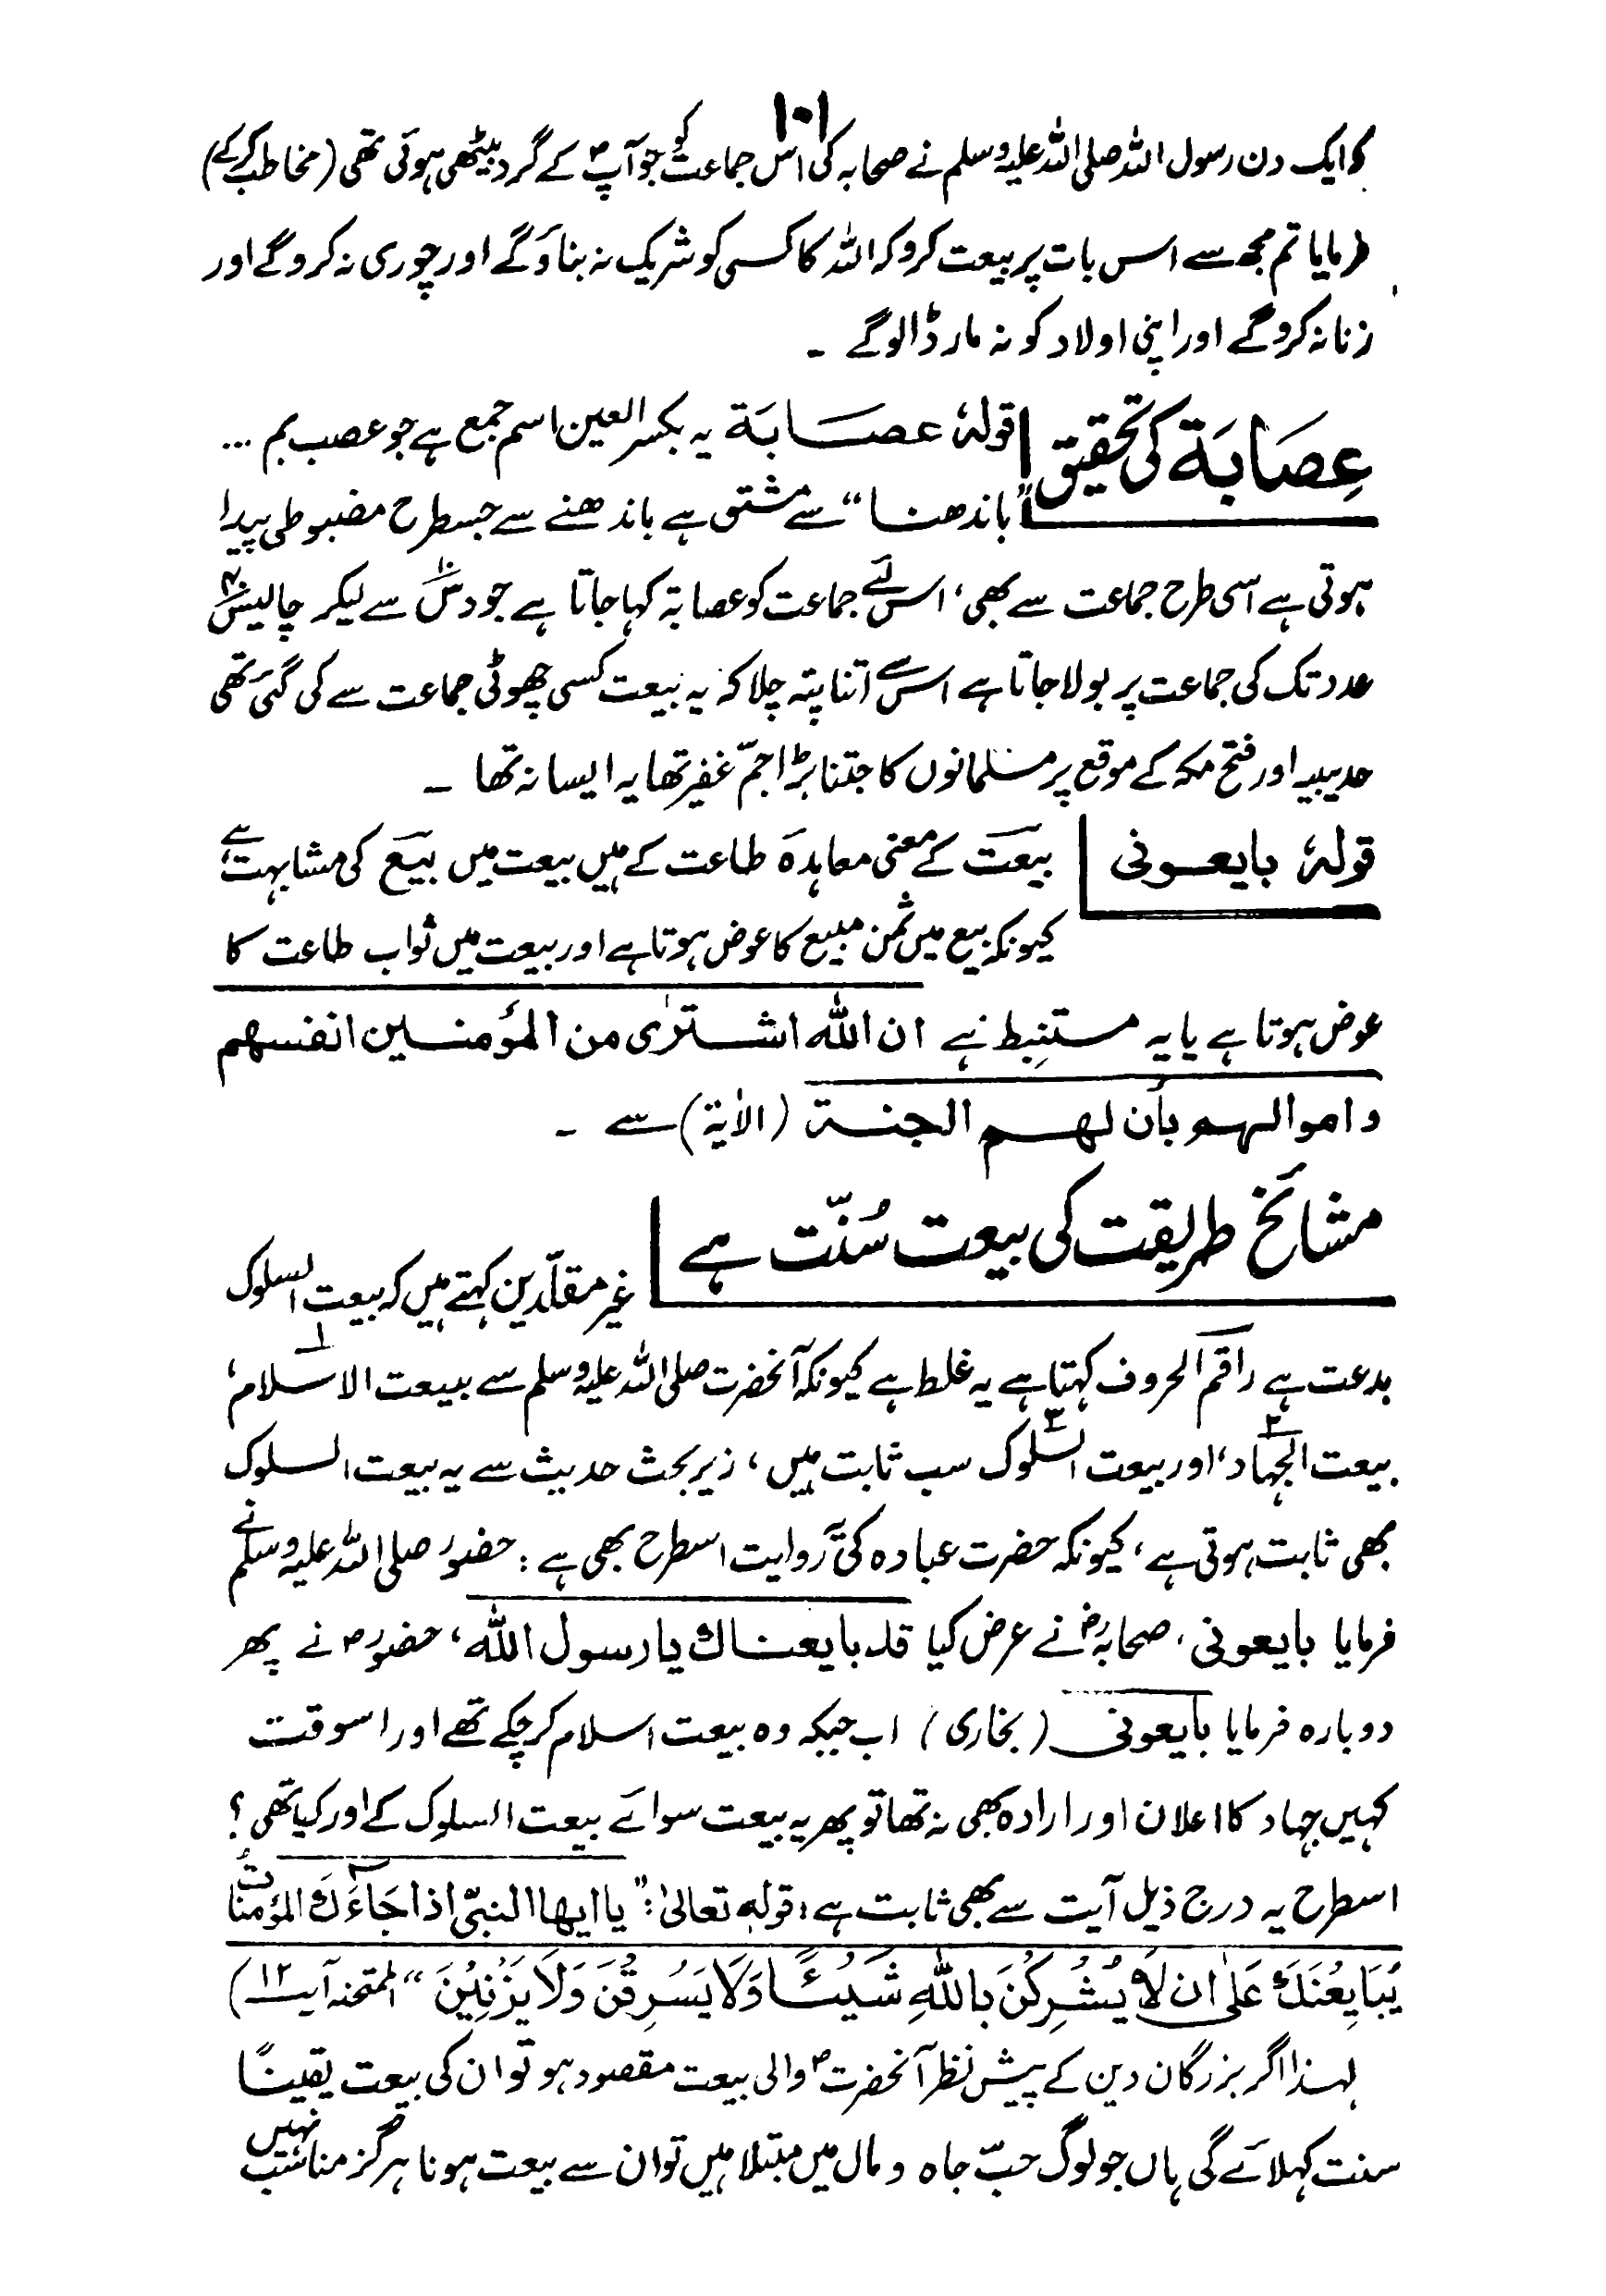 ۱۰۱
کہ ایک دن رسول اللہ صلی اللہ علیہ وسلم نے صحابہ کی اس جماعت کو جو آپؐ کے گرد بیٹھی ہوئی تھی (مخاطب کرکے)
فرمایا تم مجھ سے اس بات پر بیعت کرو کہ اللہ کا کسی کو شریک نہ بناؤگے اور چوری نہ کروگے اور
زنا نہ کروگے اور اپنی اولاد کو نہ مار ڈالوگے ۔
عِصَابَۃ کی تحقیق قولہٗ عصَابَۃ یہ بکسر العین اسم جمع ہے جو عصب بم ...
”باندھنا“ سے مشتق ہے باندھنے سے جسطرح مضبوطی پیدا
ہوتی ہے اسی طرح جماعت سے بھی، اس لئے جماعت کو عصابۃ کہا جاتا ہے جو دس۱۰ سے لیکر چالیس۴۰
عدد تک کی جماعت پر بولا جاتا ہے اس سے اتنا پتہ چلا کہ یہ بیعت کسی چھوٹی جماعت سے کی گئی تھی
حدیبیہ اور فتح مکہ کے موقع پر مسلمانوں کا جتنا بڑا جمّ غفیر تھا یہ ایسا نہ تھا ۔
قولہٗ بایعونی بیعت کے معنی معاہدۂ طاعت کے ہیں بیعت میں بیع کی مشابہت ہے
کیونکہ بیع میں ثمن مبیع کا عوض ہوتا ہے اور بیعت میں ثواب طاعت کا
عوض ہوتا ہے یا یہ مستنبط ہے ان اللہ اشترٰی من المؤمنین انفسھم
واموالھم بأن لھم الجنۃ (الاٰیۃ) سے ۔
مشائخ طریقت کی بیعت سُنّت ہے غیر مقلّدین کہتے ہیں کہ بیعت السلوک
بدعت ہے راقم الحروف کہتا ہے یہ غلط ہے کیونکہ آنحضرت صلی اللہ علیہ وسلم سے بیعت الاسلام۱،
بیعت الجہاد۲، اور بیعت السلوک۳ سب ثابت ہیں، زیر بحث حدیث سے یہ بیعت السلوک
بھی ثابت ہوتی ہے، کیونکہ حضرت عبادہ کی روایت اسطرح بھی ہے : حضور صلی اللہ علیہ وسلم نے
فرمایا بایعونی، صحابہؓ نے عرض کیا قد بایعناك یا رسول اللہ، حضورؐ نے پھر
دوبارہ فرمایا بایعونی (بخاری) اب جبکہ وہ بیعت اسلام کرچکے تھے اور اسوقت
کہیں جہاد کا اعلان اور ارادہ بھی نہ تھا تو پھر یہ بیعت سوائے بیعت السلوک کے اور کیا تھی ؟
اسطرح یہ درج ذیل آیت سے بھی ثابت ہے، قولہٖ تعالیٰ : ”یا ایھا النبیّ اذا جَآءَكَ المؤمناتُ
یُبَایِعْنَكَ عَلٰی ان لَّا یُشْرِكْنَ بِاللّٰہِ شَیْئًا وَّلَا یَسْرِقْنَ وَلَا یَزْنِیْنَ“ الممتحنہ آیت ۱۲)
لہٰذا اگر بزرگان دین کے پیش نظر آنحضرتؐ والی بیعت مقصود ہو تو ان کی بیعت یقینًا
سنت کہلائے گی ہاں جو لوگ حبّ جاہ و مال میں مبتلا ہیں تو ان سے بیعت ہونا ہرگز مناسب نہیں